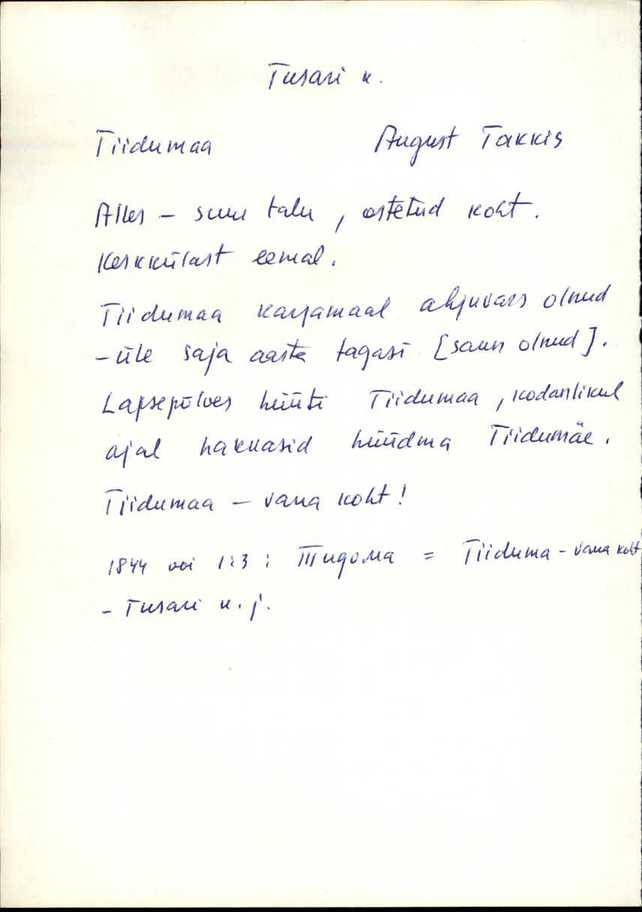 Tusari k.
Tiidumaa August Takkis
Alles - suur talu, ostetud koht.
Keskkülast eemal.
Tiidumaa karjamaal ahjuvars olnud
- üle saja aasta tagasi [saun olnud].
Lapsepõlves hüüti Tiidumaa, kodanlikul
ajal hakkasid hüüdma Tiidumäe.
Tiidumaa - vana koht!
1844 1:3 : Тидома = Tiiduma - vana koht
- Tusari k. j.